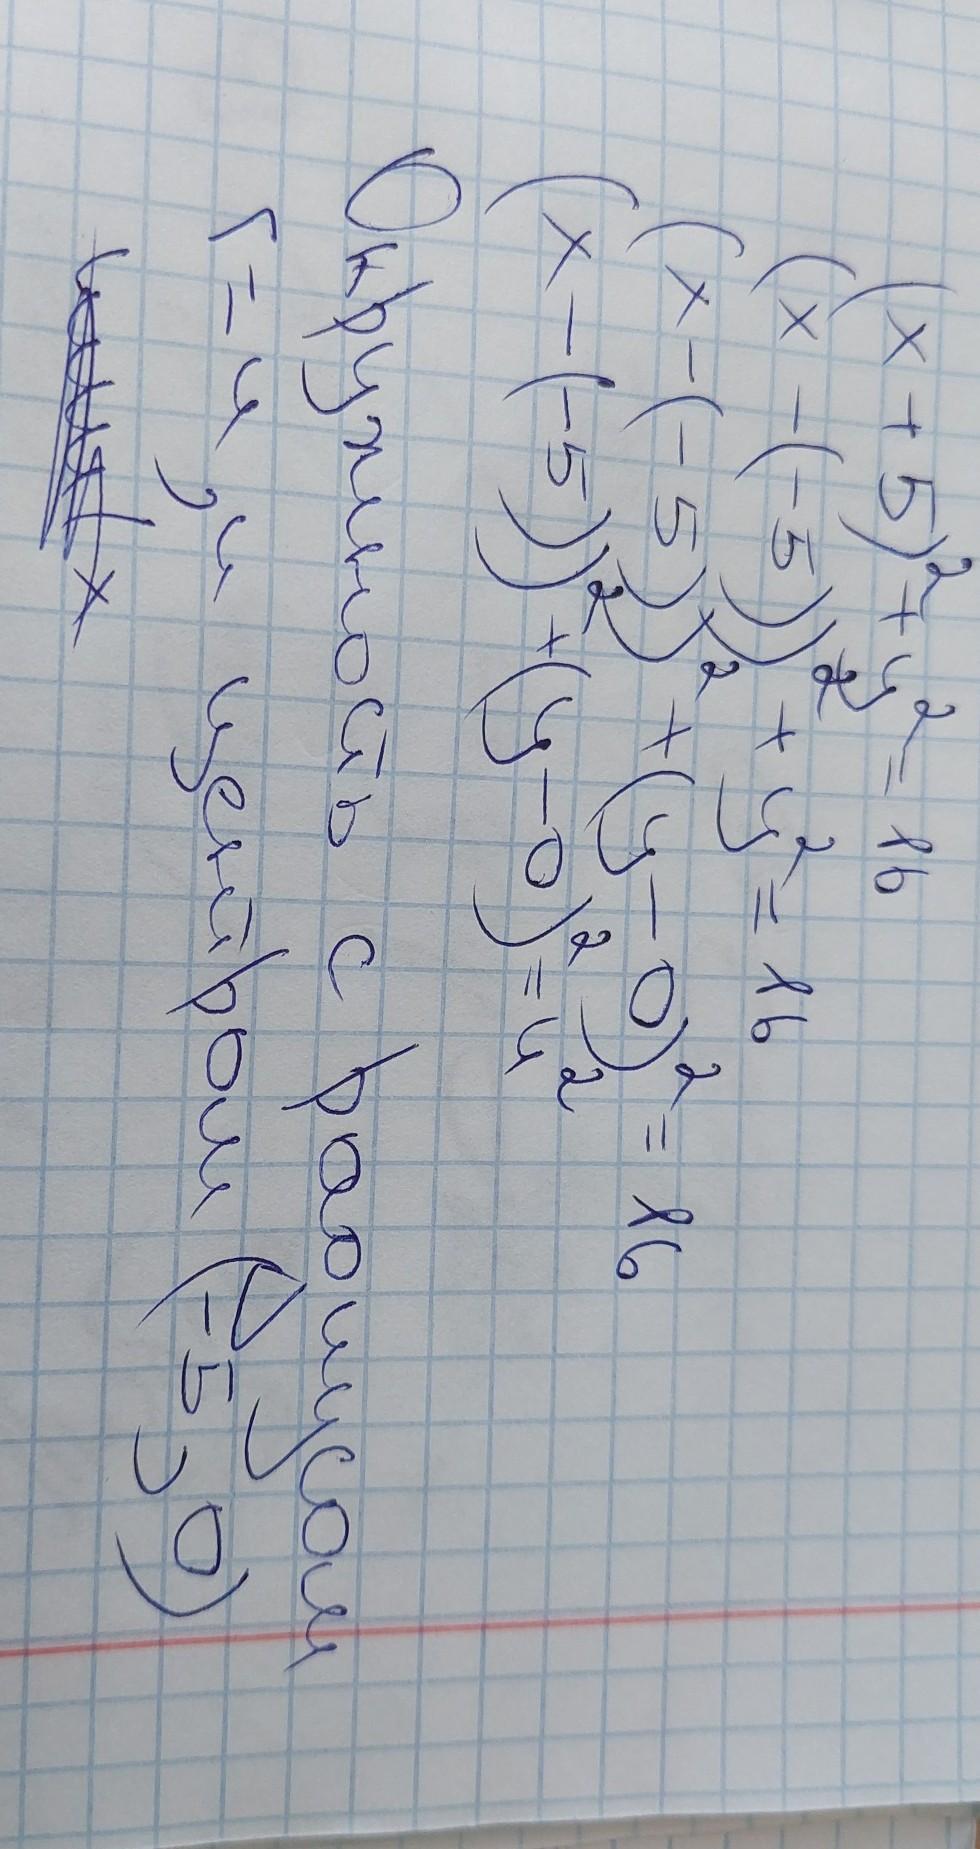 (x + 5)² + y² = 16
(x - (-5))² + y² = 16
(x - (-5))² + (y - 0)² = 16
(x - (-5))² + (y - 0)² = 4²
Окружность с радиусом
r = 4, и центром (-5, 0)